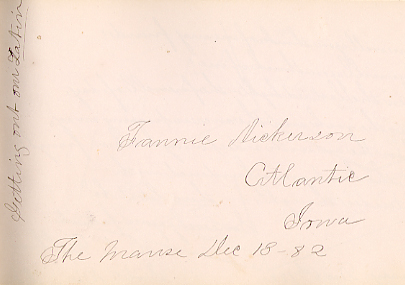 Getting out our Latin
Fannie Nickerson
Atlantic
Iowa
The Manse Dec 18-82